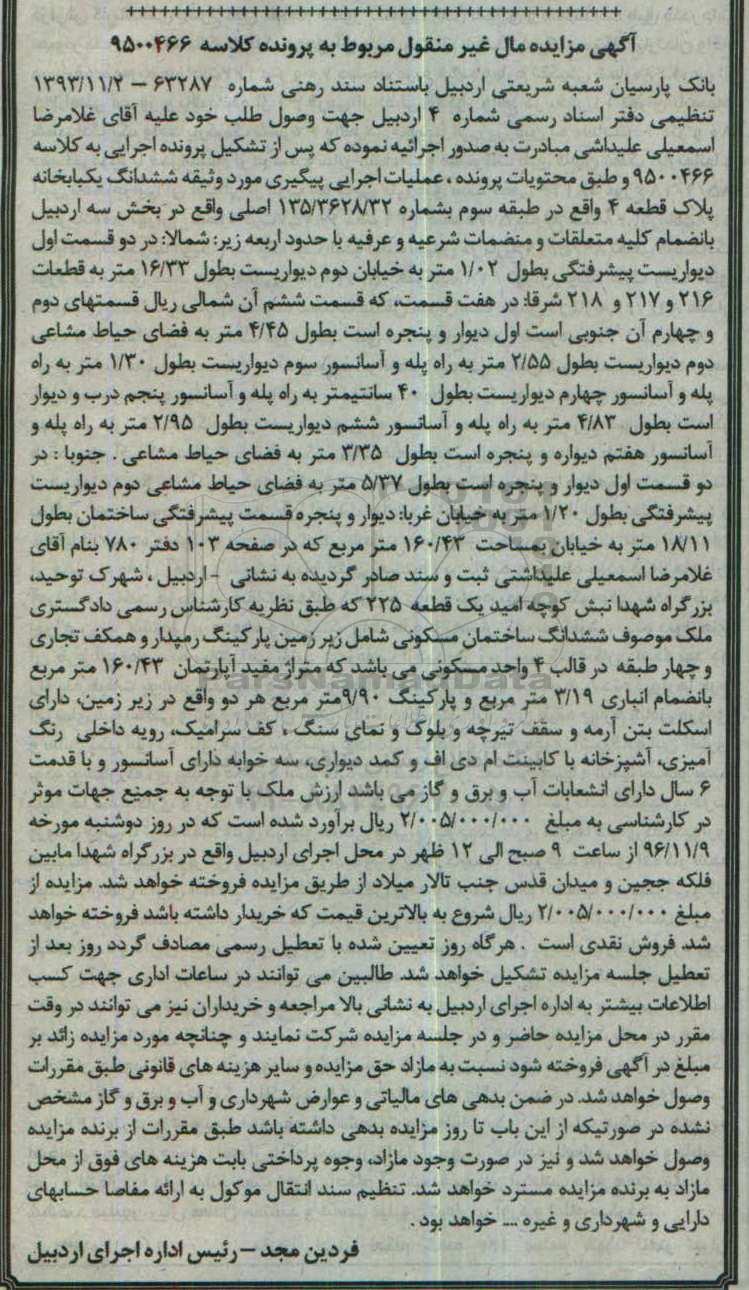 آگهی مزایده مال غیر منقول مربوط به پرونده کلاسه ۹۵۰۰۴۶۶
بانک پارسیان شعبه شریعتی اردبیل باستناد سند رهنی شماره ۶۳۲۸۷ – ۱۳۹۳/۱۱/۲
تنظیمی دفتر اسناد رسمی شماره ۴ اردبیل جهت وصول طلب خود علیه آقای غلامرضا
اسمعیلی علیداشی مبادرت به صدور اجرائیه نموده که پس از تشکیل پرونده اجرایی به کلاسه
۹۵۰۰۴۶۶ و طبق محتویات پرونده ، عملیات اجرایی پیگیری مورد وثیقه ششدانگ یکبابخانه
پلاک قطعه ۴ واقع در طبقه سوم بشماره ۱۳۵/۳۶۲۸/۳۲ اصلی واقع در بخش سه اردبیل
بانضمام کلیه متعلقات و منضمات شرعیه و عرفیه با حدود اربعه زیر: شمالا: در دو قسمت اول
دیواریست پیشرفتگی بطول ۱/۰۲ متر به خیابان دوم دیواریست بطول ۱۶/۳۳ متر به قطعات
۲۱۶ و ۲۱۷ و ۲۱۸ شرقا: در هفت قسمت، که قسمت ششم آن شمالی ریال قسمتهای دوم
و چهارم آن جنوبی است اول دیوار و پنجره است بطول ۴/۴۵ متر به فضای حیاط مشاعی
دوم دیواریست بطول ۲/۵۵ متر به راه پله و آسانسور سوم دیواریست بطول ۱/۳۰ متر به راه
پله و آسانسور چهارم دیواریست بطول ۴۰ سانتیمتر به راه پله و آسانسور پنجم درب و دیوار
است بطول ۴/۸۳ متر به راه پله و آسانسور ششم دیواریست بطول ۲/۹۵ متر به راه پله و
آسانسور هفتم دیواره و پنجره است بطول ۳/۳۵ متر به فضای حیاط مشاعی . جنوبا : در
دو قسمت اول دیوار و پنجره است بطول ۵/۳۷ متر به فضای حیاط مشاعی دوم دیواریست
پیشرفتگی بطول ۱/۲۰ متر به خیابان غربا: دیوار و پنجره قسمت پیشرفتگی ساختمان بطول
۱۸/۱۱ متر به خیابان بمساحت ۱۶۰/۴۳ متر مربع که در صفحه ۱۰۳ دفتر ۷۸۰ بنام آقای
غلامرضا اسمعیلی علیداشتی ثبت و سند صادر گردیده به نشانی - اردبیل ، شهرک توحید،
بزرگراه شهدا نبش کوچه امید یک قطعه ۲۲۵ که طبق نظریه کارشناس رسمی دادگستری
ملک موصوف ششدانگ ساختمان مسکونی شامل زیر زمین پارکینگ رمپدار و همکف تجاری
و چهار طبقه در قالب ۴ واحد مسکونی می باشد که متراژ مفید آپارتمان ۱۶۰/۴۳ متر مربع
بانضمام انباری ۳/۱۹ متر مربع و پارکینگ ۹/۹۰متر مربع هر دو واقع در زیر زمین، دارای
اسکلت بتن آرمه و سقف تیرچه و بلوک و نمای سنگ ، کف سرامیک، رویه داخلی رنگ
آمیزی، آشپزخانه با کابینت ام دی اف و کمد دیواری، سه خوابه دارای آسانسور و با قدمت
۶ سال دارای انشعابات آب و برق و گاز می باشد ارزش ملک با توجه به جمیع جهات موثر
در کارشناسی به مبلغ ۲/۰۰۵/۰۰۰/۰۰۰ ریال برآورد شده است که در روز دوشنبه مورخه
۹۶/۱۱/۹ از ساعت ۹ صبح الی ۱۲ ظهر در محل اجرای اردبیل واقع در بزرگراه شهدا مابین
فلکه ججین و میدان قدس جنب تالار میلاد از طریق مزایده فروخته خواهد شد. مزایده از
مبلغ ۲/۰۰۵/۰۰۰/۰۰۰ ریال شروع به بالاترین قیمت که خریدار داشته باشد فروخته خواهد
شد. فروش نقدی است . هرگاه روز تعیین شده با تعطیل رسمی مصادف گردد روز بعد از
تعطیل جلسه مزایده تشکیل خواهد شد. طالبین می توانند در ساعات اداری جهت کسب
اطلاعات بیشتر به اداره اجرای اردبیل به نشانی بالا مراجعه و خریداران نیز می توانند در وقت
مقرر در محل مزایده حاضر و در جلسه مزایده شرکت نمایند و چنانچه مورد مزایده زائد بر
مبلغ در آگهی فروخته شود نسبت به مازاد حق مزایده و سایر هزینه های قانونی طبق مقررات
وصول خواهد شد. در ضمن بدهی های مالیاتی و عوارض شهرداری و آب و برق و گاز مشخص
نشده در صورتیکه از این باب تا روز مزایده بدهی داشته باشد طبق مقررات از برنده مزایده
وصول خواهد شد و نیز در صورت وجود مازاد، وجوه پرداختی بابت هزینه های فوق از محل
مازاد به برنده مزایده مسترد خواهد شد. تنظیم سند انتقال موکول به ارائه مفاصا حسابهای
دارایی و شهرداری و غیره .... خواهد بود .
فردین مجد – رئیس اداره اجرای اردبیل
ParsNamadData